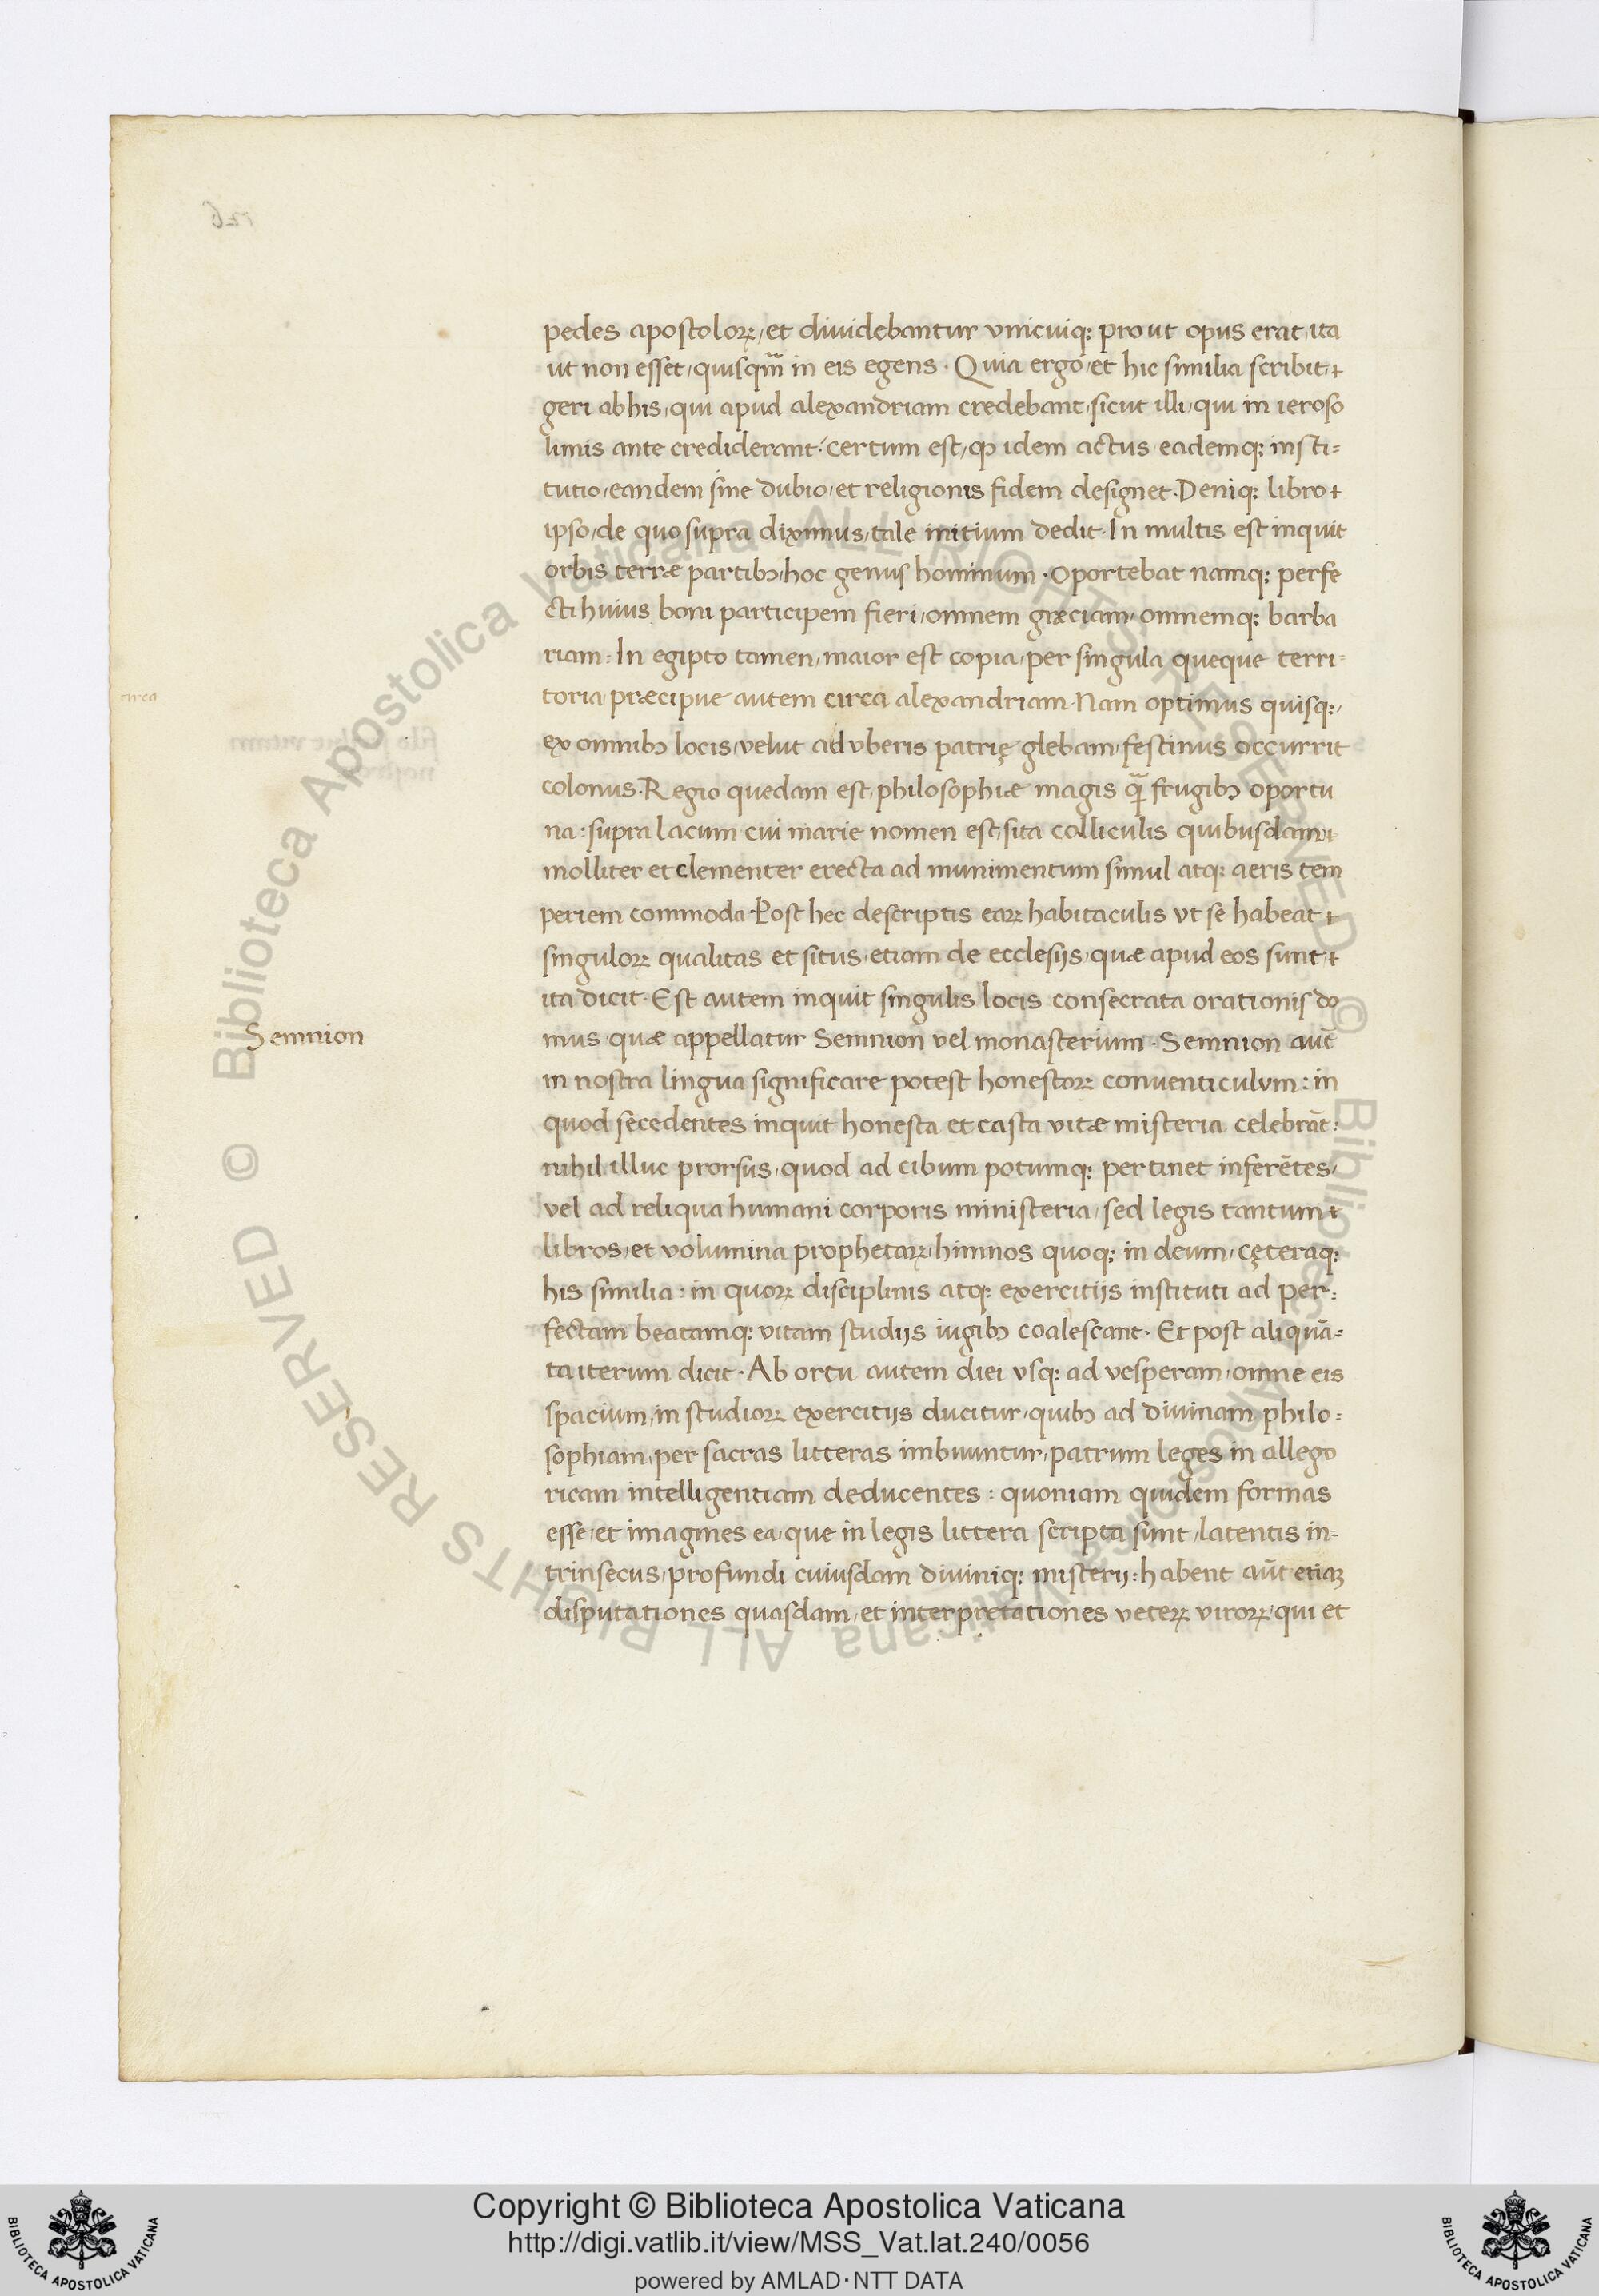 pedes apostoloꝝ, et diuidebantur vnicuiqꝫ prout opus erat, ita
ut non esset, quisqᷓm in eis egens. Quia ergo, et hic similia scribit,
geri ab his, qui apud alexandriam credebant, sicut illi, qui in ieroso
limis ante crediderant: certum est, ꝙ idem actus eademqꝫ insti=
tutio, eandem sine dubio, et religionis fidem designet. Deniqꝫ libro
ipso, de quo supra diximus, tale initium dedit. In multis est inquit
orbis terræ partibꝰ, hoc genus hominum. Oportebat namqꝫ perfe
cti huius boni participem fieri, omnem græciam, omnemqꝫ barba
riam: In egipto tamen, maior est copia, per singula queque terri=
circa
toria, præcipue autem circa alexandriam. Nam optimus quisqꝫ,
ex omnibꝰ locis, velut ad vberis patrię glebam, festinus occurrit
colonus. Regio quedam est, philosophiæ magis qᷓ frugibꝰ oportu
na: supra lacum cui marie nomen est, sita colliculis quibusdam,
molliter et clementer erecta ad munimentum simul atqꝫ aeris tem
periem commoda. Post hec descriptis eaꝝ habitaculis vt se habeat
singuloꝝ qualitas et situs, etiam de ecclesijs, quæ apud eos sunt
ita dicit. Est autem inquit singulis locis consecrata orationis do
Semnion
mus quæ appellatur Semnion vel monasterium. Semnion aut̄
in nostra lingua significare potest honestoꝝ conuenticulum: in
quod secedentes inquit honesta et casta vitæ misteria celebrāt:
nihil illuc prorsus, quod ad cibum potumqꝫ pertinet inferētes,
vel ad reliqua humani corporis ministeria, sed legis tantum
libros, et volumina prophetaꝝ, himnos quoqꝫ in deum, cęteraqꝫ
his similia: in quoꝝ disciplinis atqꝫ exercitijs instituti ad per=
fectam beatamqꝫ vitam studijs iugibꝰ coalescant. Et post aliquā=
ta iterum dicit. Ab ortu autem diei vsqꝫ ad vesperam, omne eis
spacium, in studioꝝ exercitijs ducitur, quibꝰ ad diuinam philo=
sophiam, per sacras litteras imbuuntur, patrum leges in allego
ricam intelligentiam deducentes: quoniam quidem formas
esse, et imagines ea, que in legis littera scripta sunt, latentis in=
trinsecus, profundi cuiusdam diuiniqꝫ misterij: habent aut̄ etiaꝫ
disputationes quasdam, et interpretationes veteꝝ viroꝝ, qui et
© Biblioteca Apostolica Vaticana ALL RIGHTS RESERVED
© Biblioteca Apostolica Vaticana ALL RIGHTS RESERVED
Copyright © Biblioteca Apostolica Vaticana
http://digi.vatlib.it/view/MSS_Vat.lat.240/0056
powered by AMLAD·NTT DATA
BIBLIOTECA APOSTOLICA VATICANA
BIBLIOTECA APOSTOLICA VATICANA